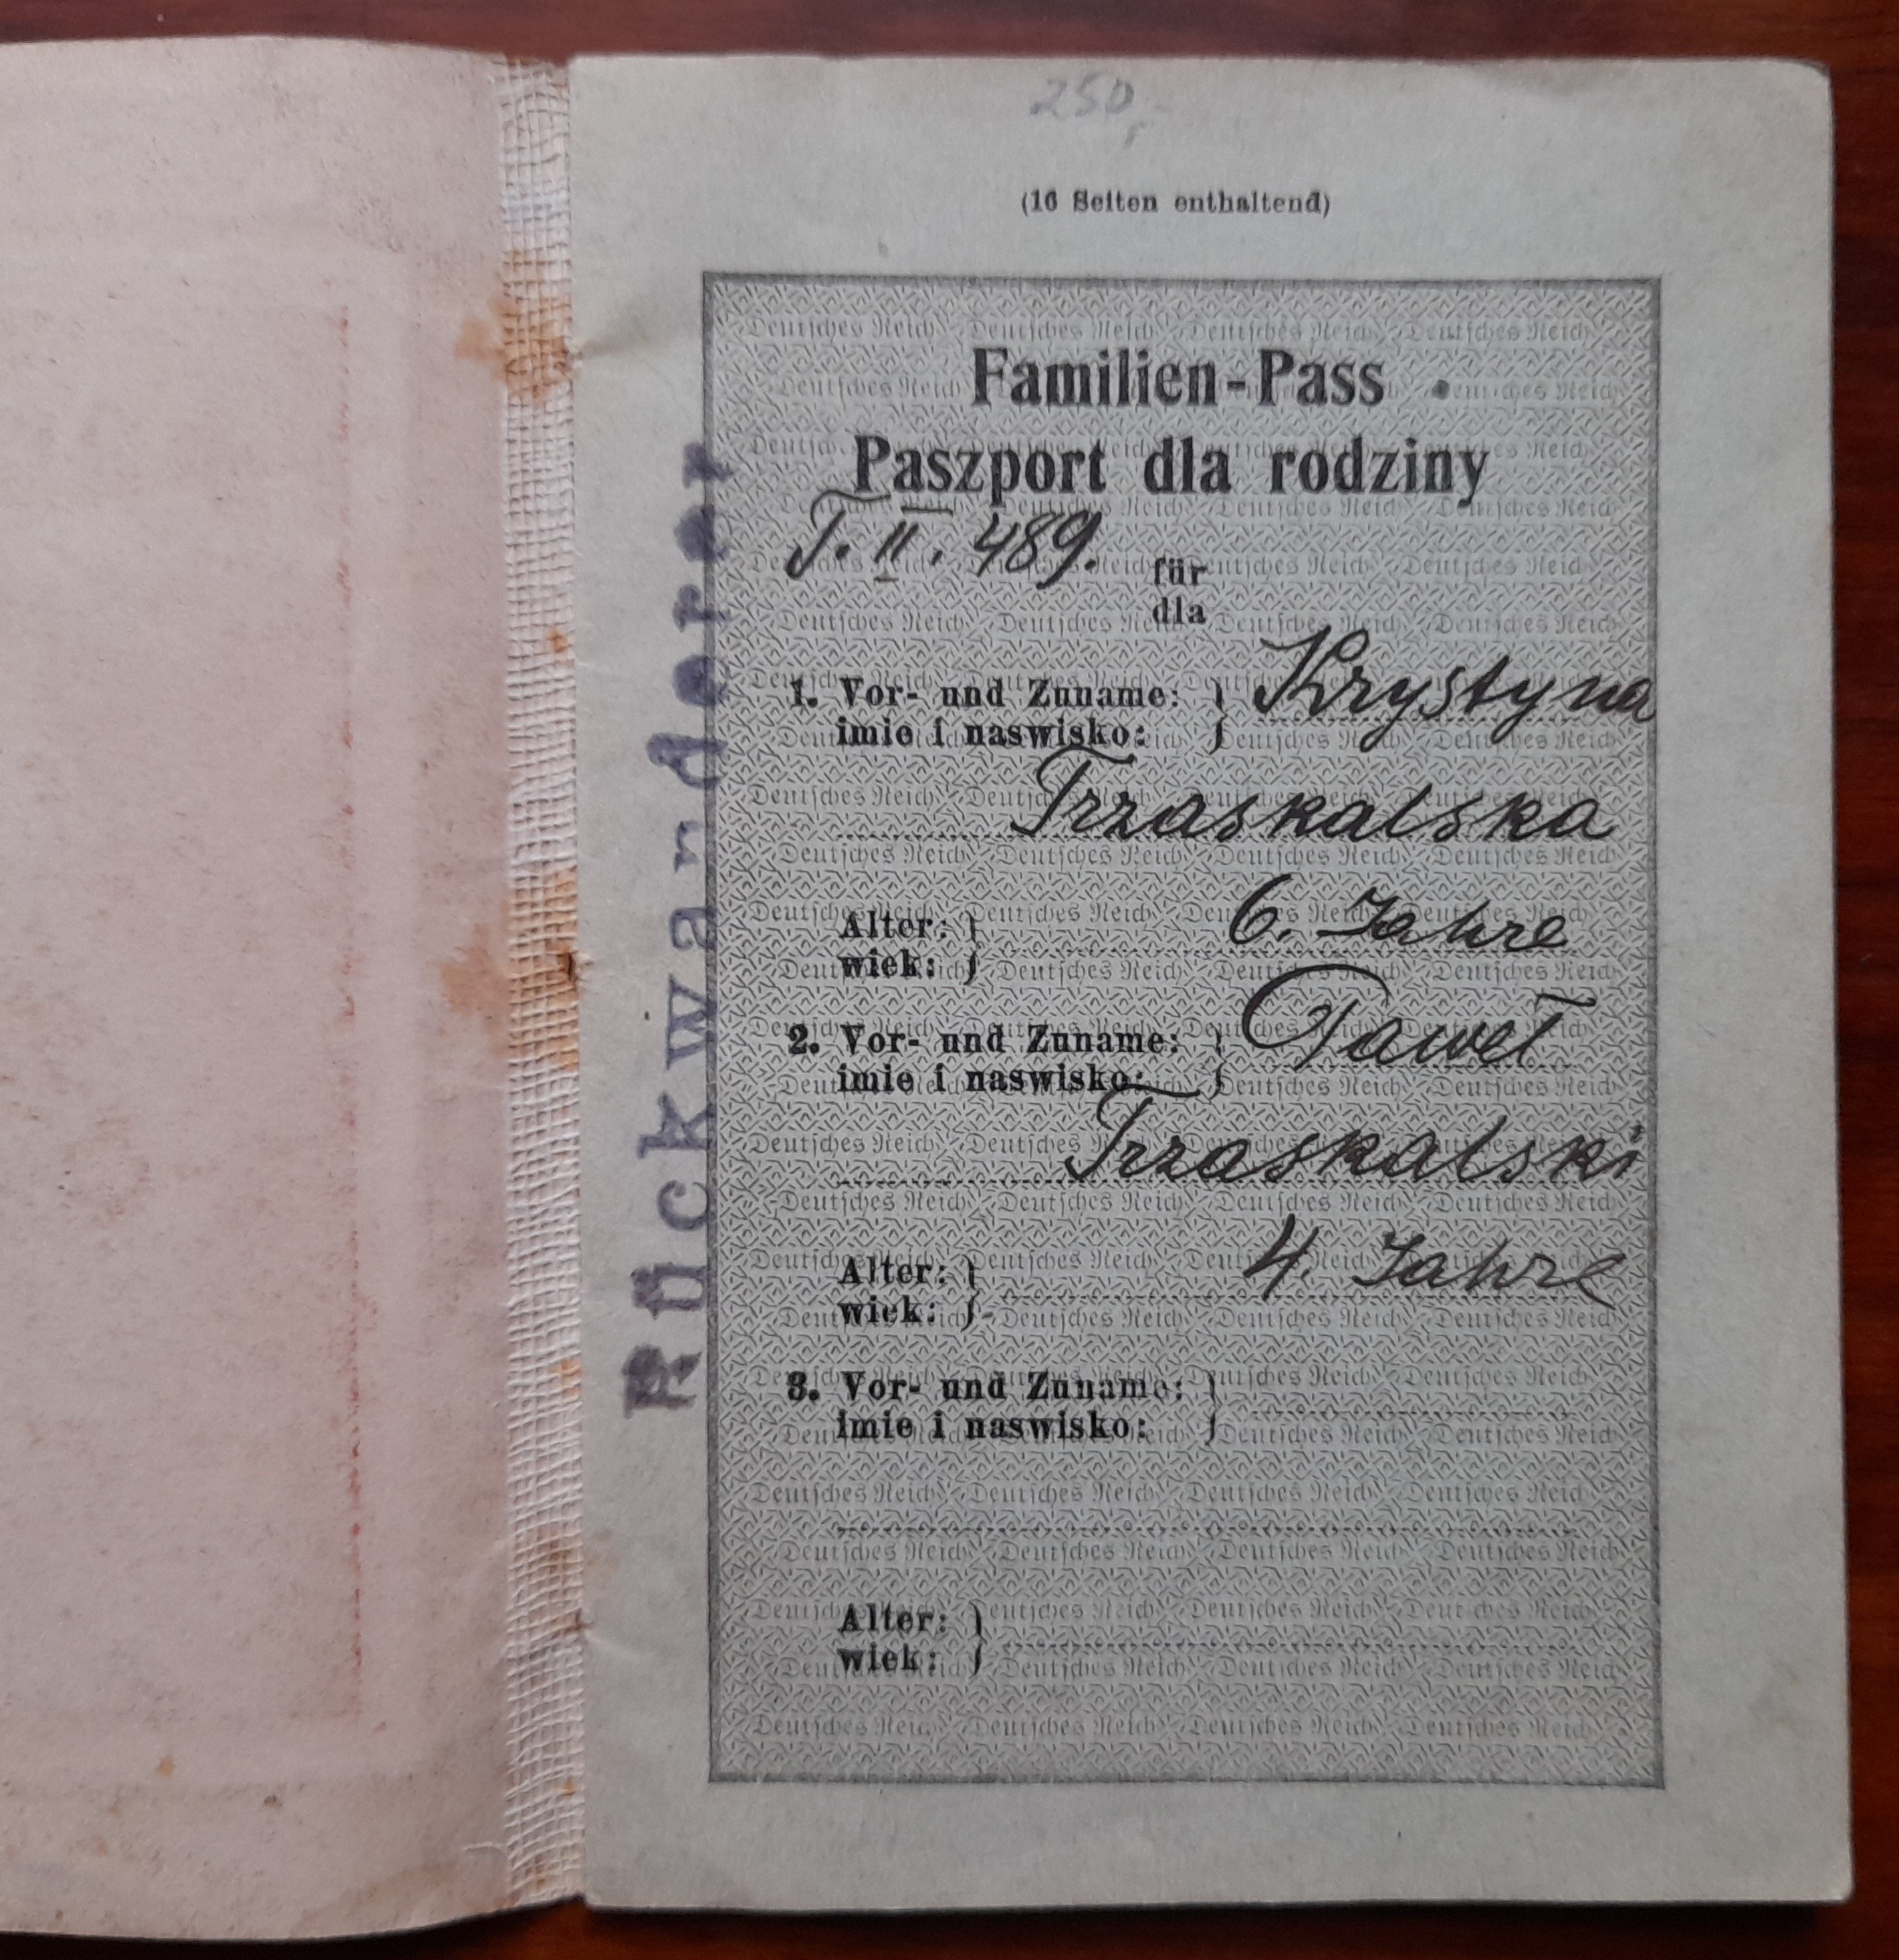 250,-
(16 Seiten enthaltend)
Familien-Pass
Paszport dla rodziny
T. II. 489.
für
dla
1. Vor- und Zuname: } Krystyna
imie i naswisko: }
Trzaskalska
Alter: } 6. Jahre
wiek: }
2. Vor- und Zuname: } Paweł
imie i naswisko: }
Trzaskalski
Alter: } 4. Jahre
wiek: }
3. Vor- und Zuname: }
imie i naswisko: }
Alter: }
wiek: }
Rückwanderer
Deutsches Reich